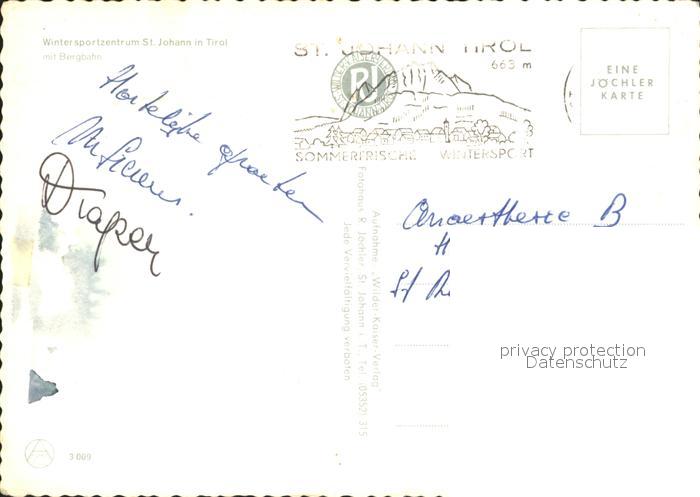 Wintersportzentrum St. Johann in Tirol
mit Bergbahn
ST. JOHANN TIROL
663 m
SOMMERFRISCHE WINTERSPORT
EINE
JÖCHLER
KARTE
Hartelijke groeten
Anaesthesie B
H
St
Aufnahme: „Wilder-Kaiser-Verlag"
Fotohaus R. Jöchler, St. Johann i. T., Tel. (05352) 315
Jede Vervielfältigung verboten
privacy protection
Datenschutz
3 009